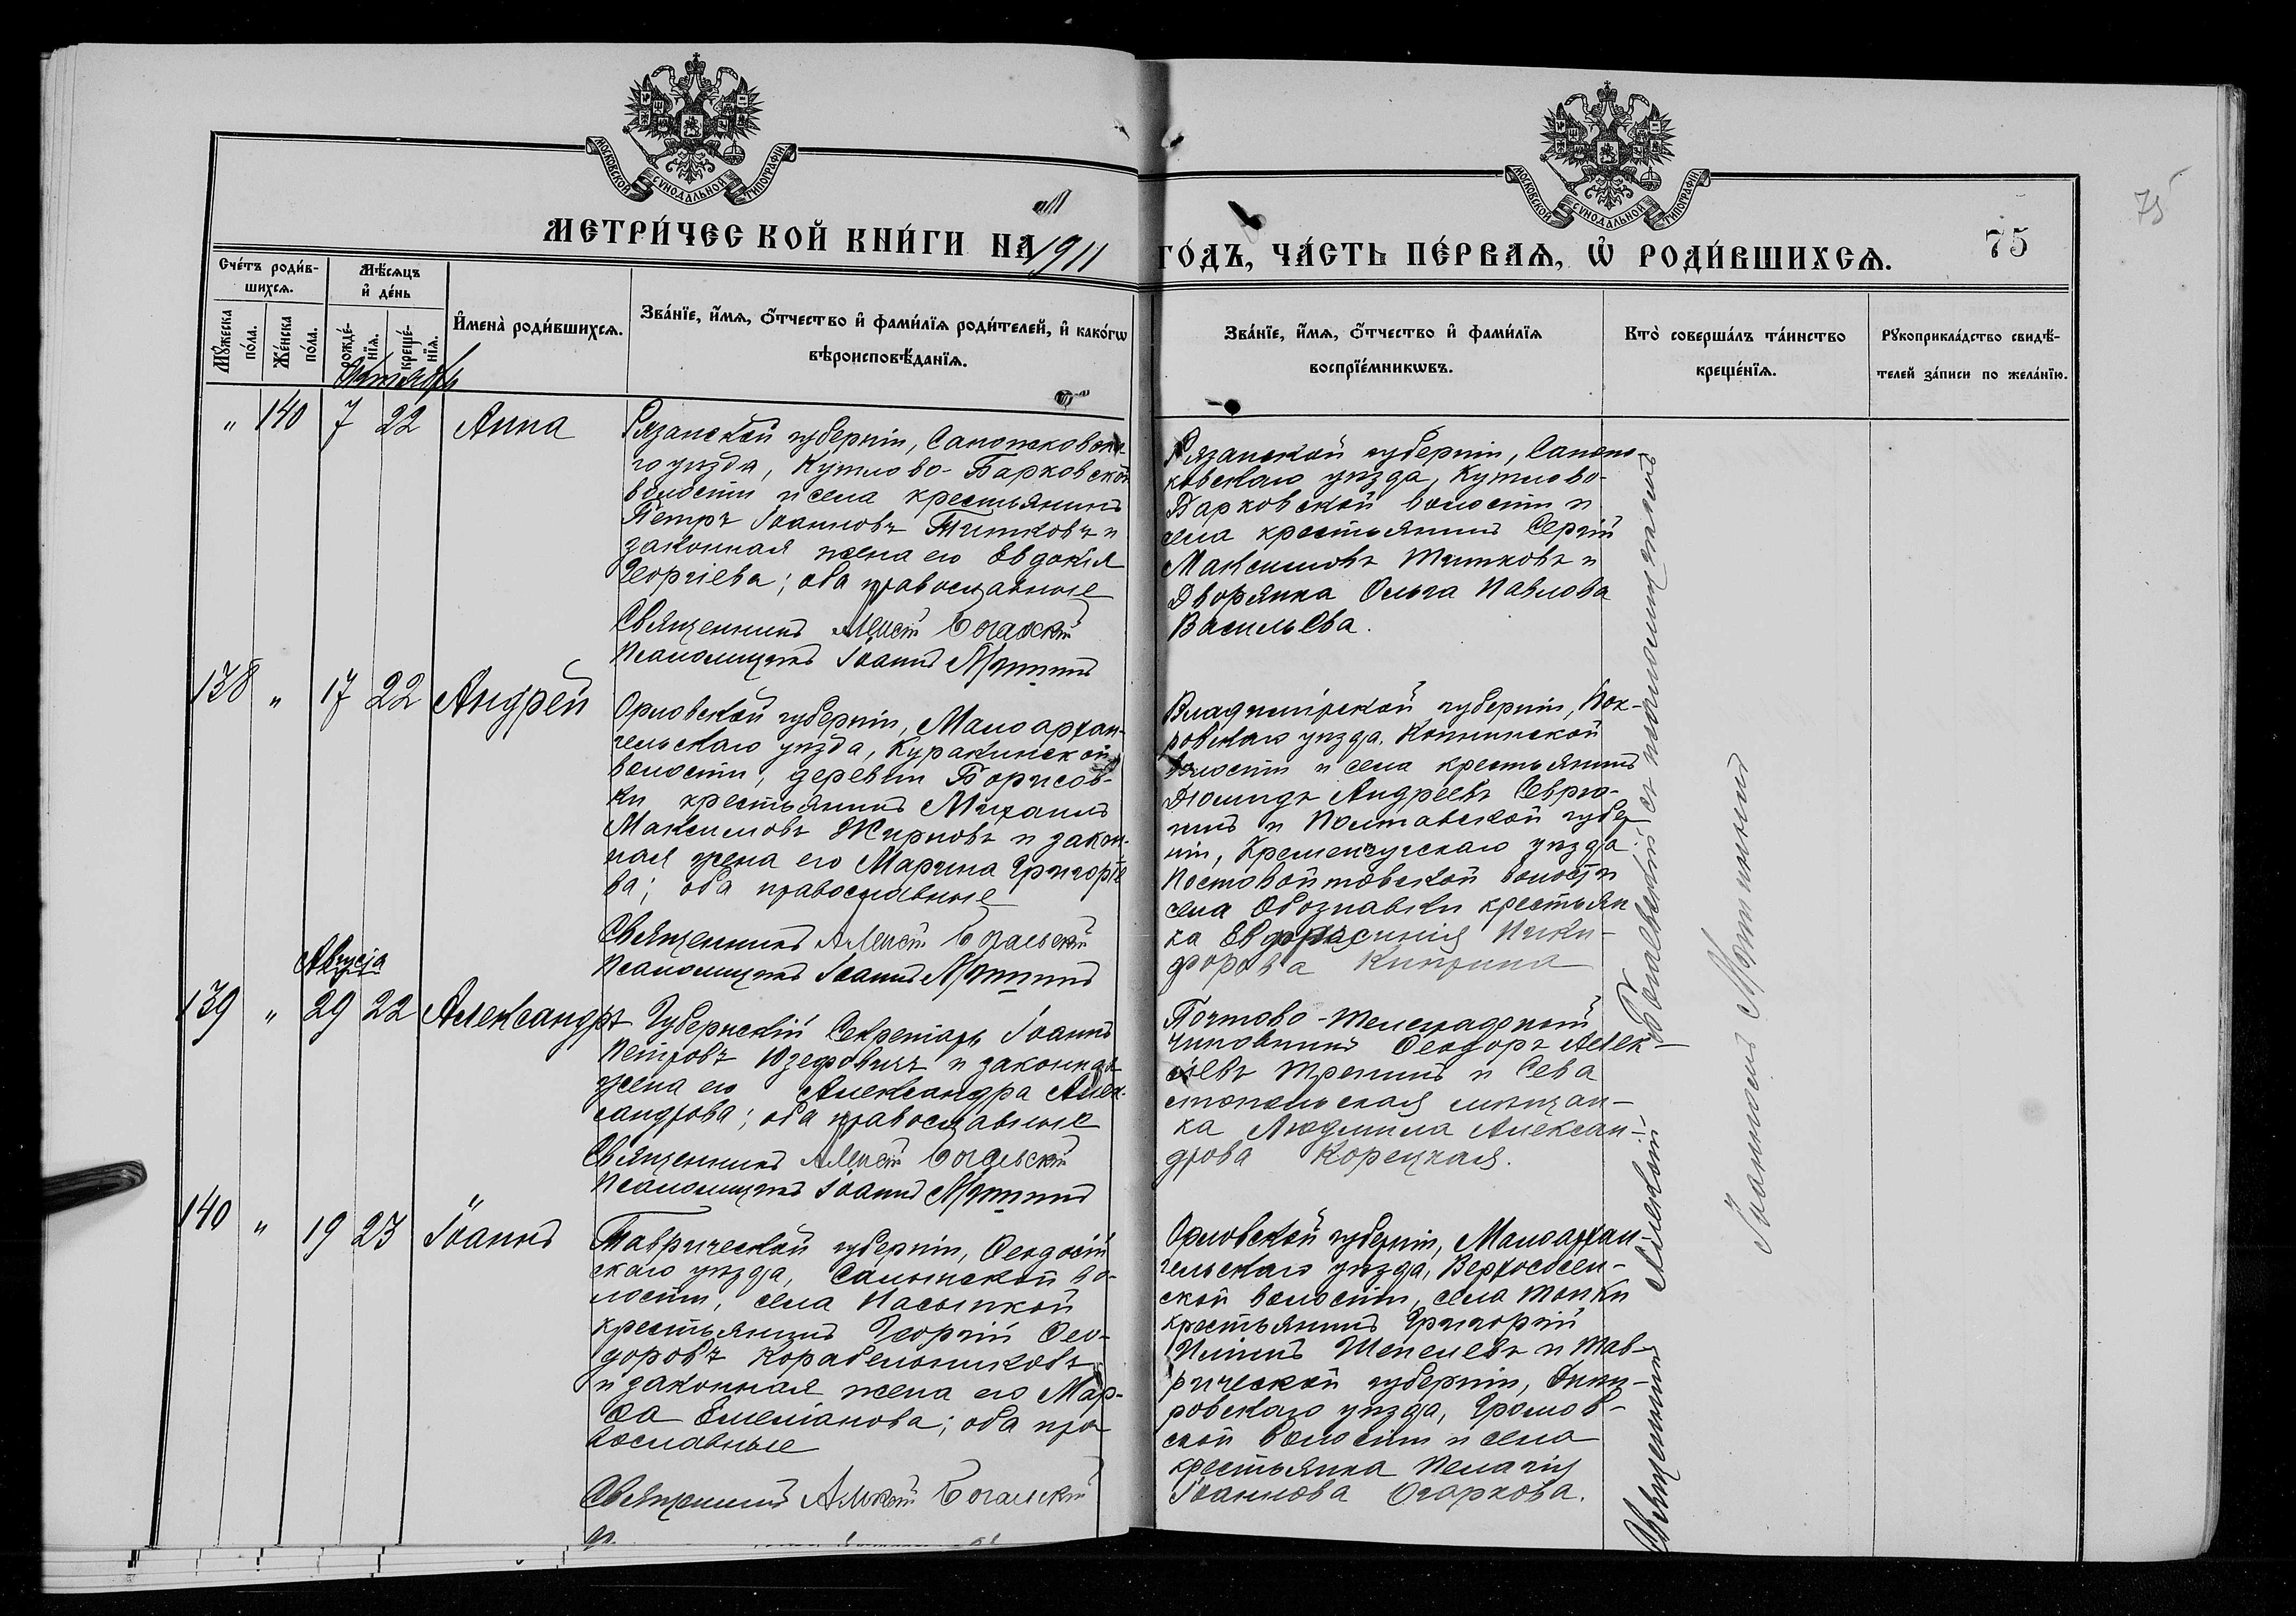 МОСКОВСКОЙ СѴНОДАЛЬНОЙ ТИПОГРАФІИ
МОСКОВСКОЙ СѴНОДАЛЬНОЙ ТИПОГРАФІИ
75
МЕТРИ́ЧЕСКОЙ КНИ́ГИ НА 1911 ГО́ДЪ, ЧА́СТЬ ПЕ́РВАѦ, Ѡ҆ РОДИ́ВШИХСѦ.
75
Сче́тъ роди́в-
шихсѧ.
Мꙋ́жеска
по́ла.
Же́нска
по́ла.
Мѣ́сѧцъ
и҆ де́нь
рожде́-
нїѧ.
креще́-
нїѧ.
И҆мена̀ роди́вшихсѧ.
Зва́нїе, и҆́мѧ, ѻ҆́тчество и҆ фами́лїѧ роди́телей, и҆ како́гѡ
вѣроисповѣ́данїѧ.
Зва́нїе, и҆́мѧ, ѻ҆́тчество и҆ фами́лїѧ
воспрїе́мникѡвъ.
Кто̀ соверша́лъ та́инство
креще́нїѧ.
Рꙋкоприкла́дство свидѣ́-
телей за́писи по жела́нїю.
Октябрь
" 140 7 22 Анна
Рязанской губерніи, Сапожковска-
го уѣзда, Кутлово-Борковской
волости и села крестьянинъ
Петръ Іоанновъ Титковъ и
законная жена его Евдокія
Георгіева; оба православные
Священникъ Алексій Богаевскій
Псаломщикъ Іоаннъ Мартинъ
Рязанской губерніи, Сапож-
ковскаго уѣзда, Кутлово-
Борковской волости и
села крестьянинъ Сергій
Максимовъ Титковъ и
Дворянка Ольга Павлова
Васильева.
138 " 17 22 Андрей
Орловской губерніи, Малоархан-
гельскаго уѣзда, Куракинской
волости, деревни Борисов-
ки крестьянинъ Михаилъ
Максимовъ Жирновъ и закон-
ная жена его Марина Григоріе-
ва; оба православные
Священникъ Алексій Богаевскій
Псаломщикъ Іоаннъ Мартинъ
Владимірской губерніи, Пок-
ровскаго уѣзда, Копнинской
волости и села крестьянинъ
Діомидъ Андреевъ
и Полтавской губер-
ніи, Кременчугскаго уѣзда
волости
села Обознавки крестьян-
ка Евфросинія Ники-
форова
Августа
139 " 29 22 Александръ
Губернскій Секретарь Іоаннъ
Петровъ Юзефовичъ и законная
жена его Александра Алек-
сандрова; оба православные
Священникъ Алексій Богаевскій
Псаломщикъ Іоаннъ Мартинъ
Почтово-телеграфный
чиновникъ Ѳеодоръ Алек-
сѣевъ и Сева
стопольская мѣщан-
ка Людмила Алексан-
дрова Корецкая.
140 " 19 23 Іоаннъ
Таврической губерніи, Ѳеодосій-
скаго уѣзда, Салынской во-
лости, села Насыпкой
крестьянинъ Георгій Ѳео-
доровъ Корабельниковъ
и законная жена его Мар-
ѳа Емеліанова; оба пра-
вославные
Священникъ Алексій Богаевскій
Орловской губерніи, Малоархан-
гельскаго уѣзда, Верхососен-
ской волости, села Топки
крестьянинъ Григорій
Ильинъ Шепелевъ и Тав-
рической губерніи, Днѣп-
ровскаго уѣзда, Громов-
ской волости и села
крестьянка Пелагія
Іоаннова Огаркова.
Священникъ Алексій Богаевскій съ псаломщикомъ
Іоанномъ Мартинымъ